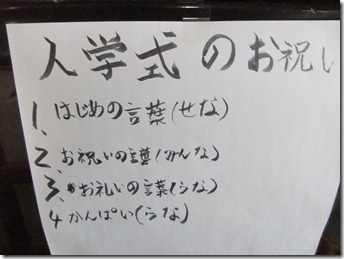 入学式のお祝い
1、はじめの言葉(せな)
2、お祝いの言葉(みんな)
3、お礼いの言葉(らな)
4かんぱい(らな)